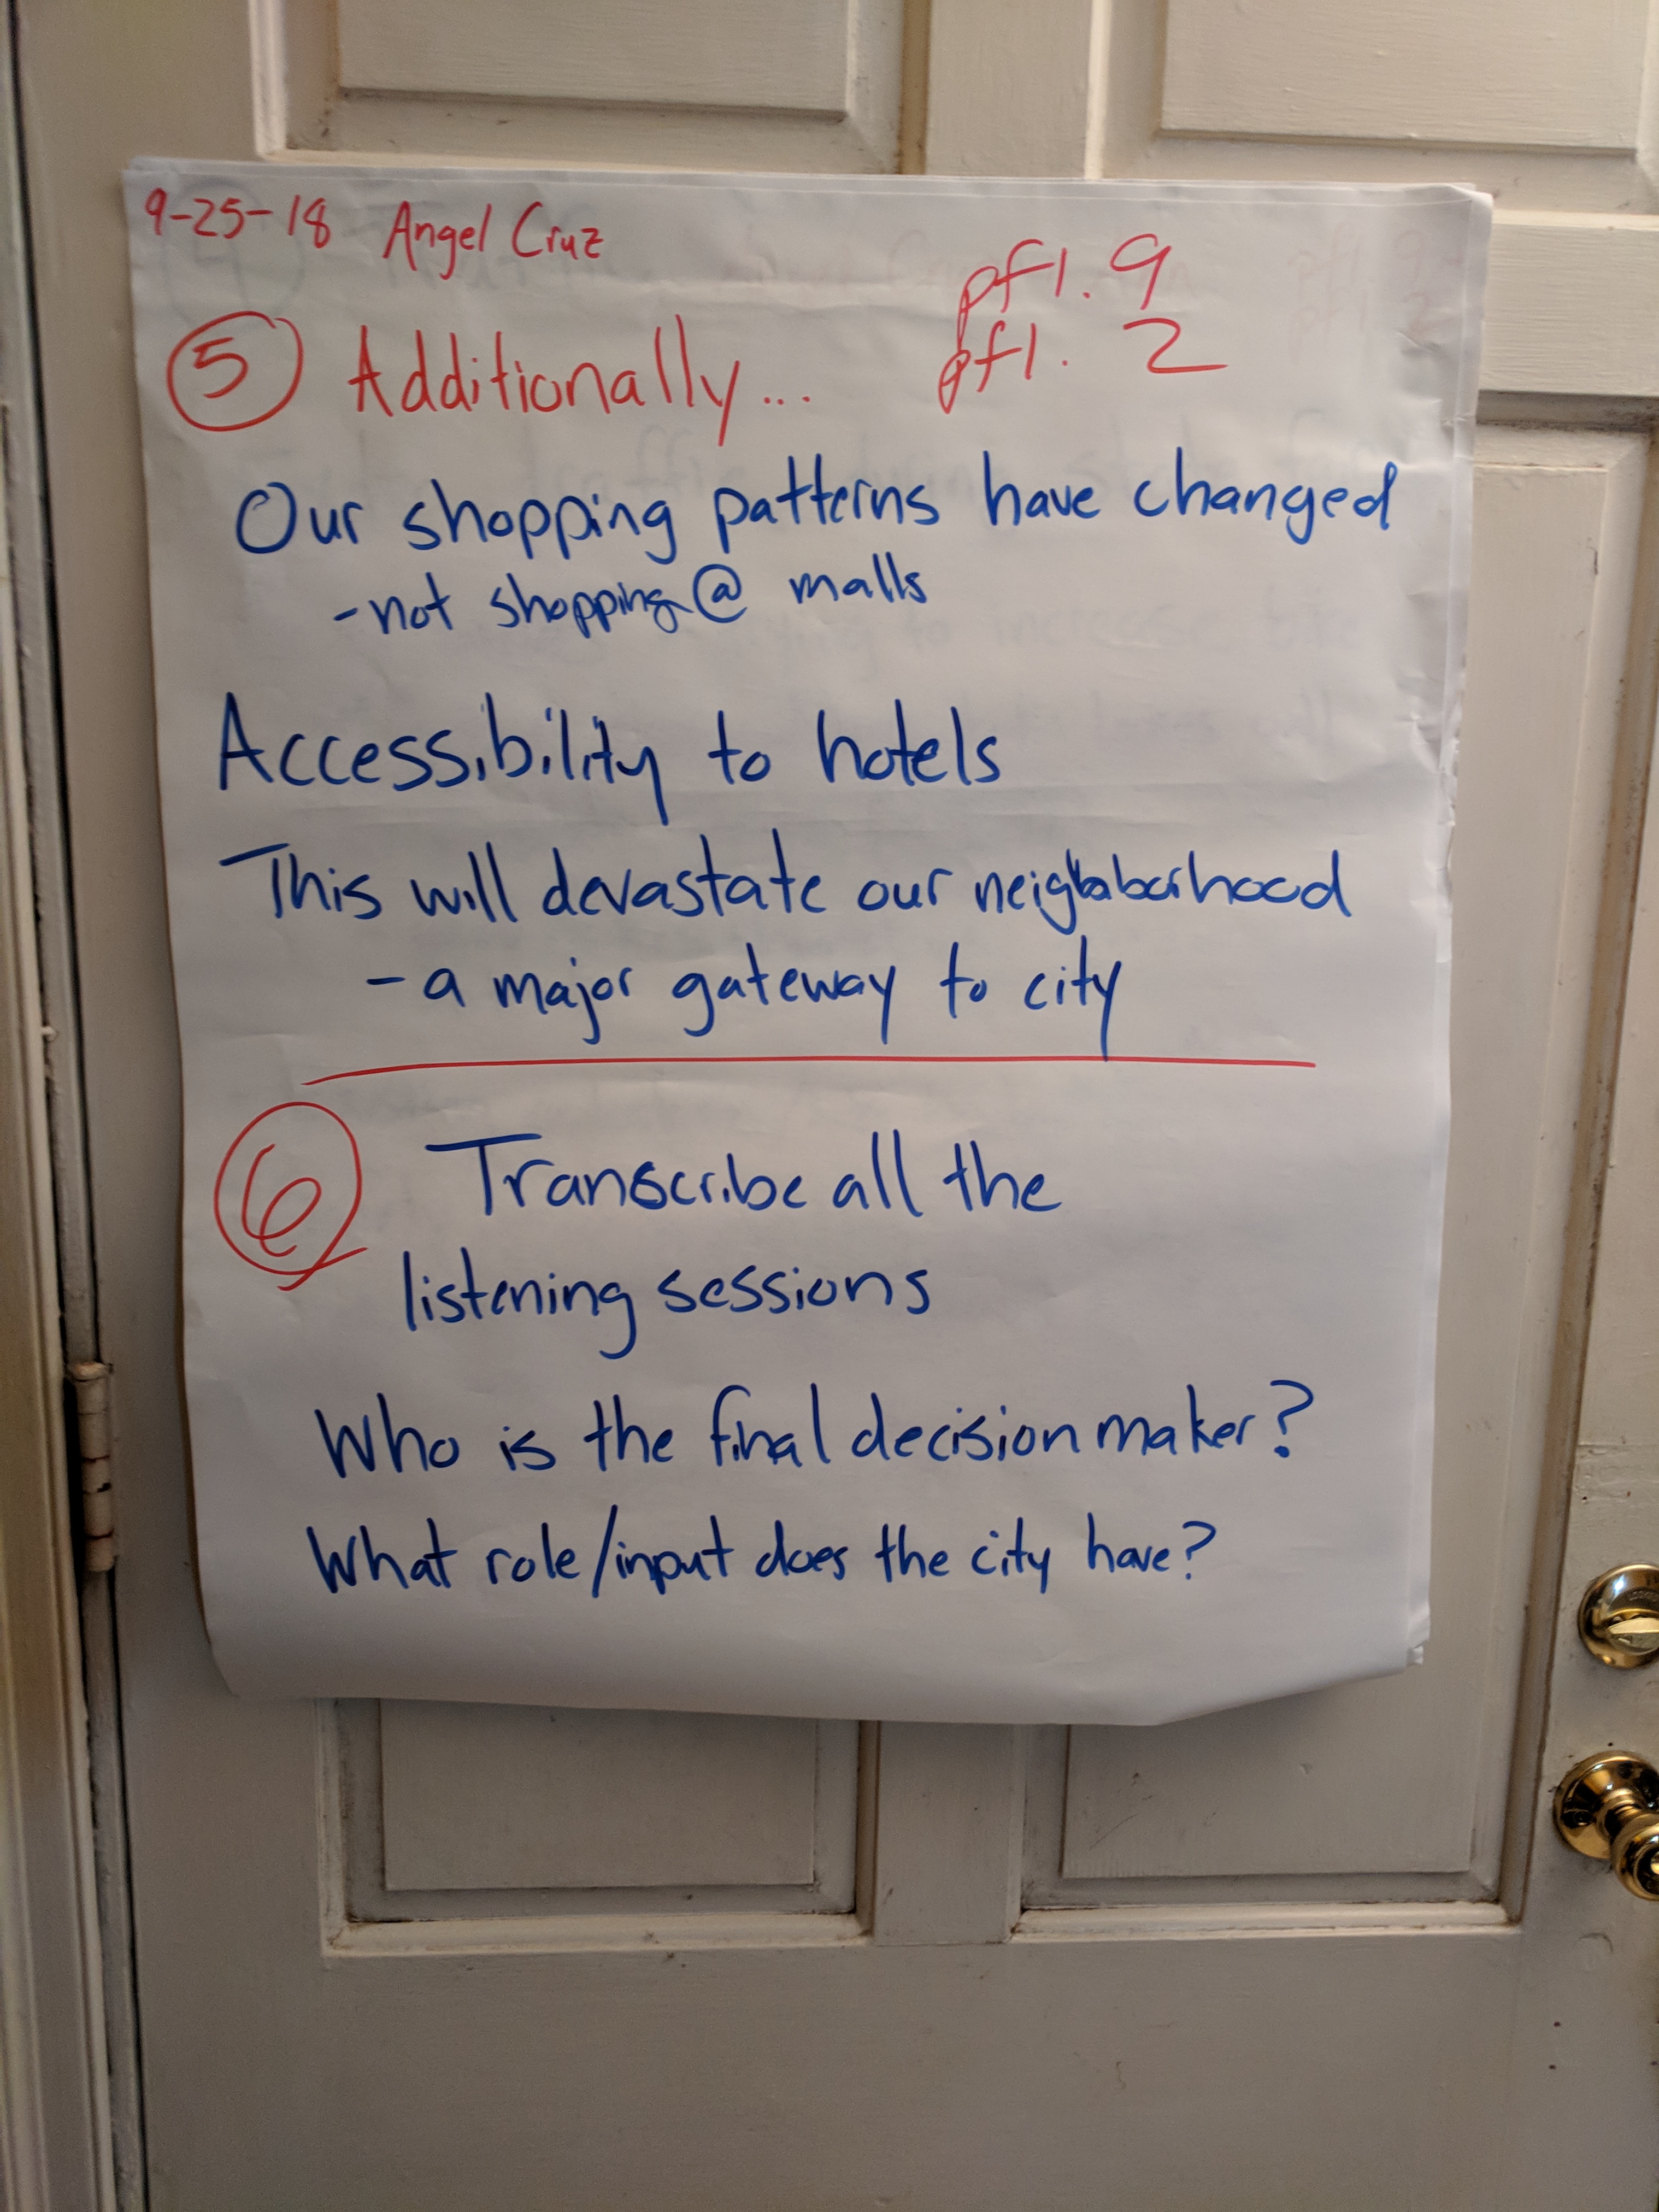 9-25-18 Angel Cruz
pf1. 9
pf1. 2
5 Additionally...
Our shopping patterns have changed
-not shopping @ malls
Accessibility to hotels
This will devastate our neighborhood
- a major gateway to city
6 Transcribe all the
listening sessions
Who is the final decision maker?
What role/input does the city have?